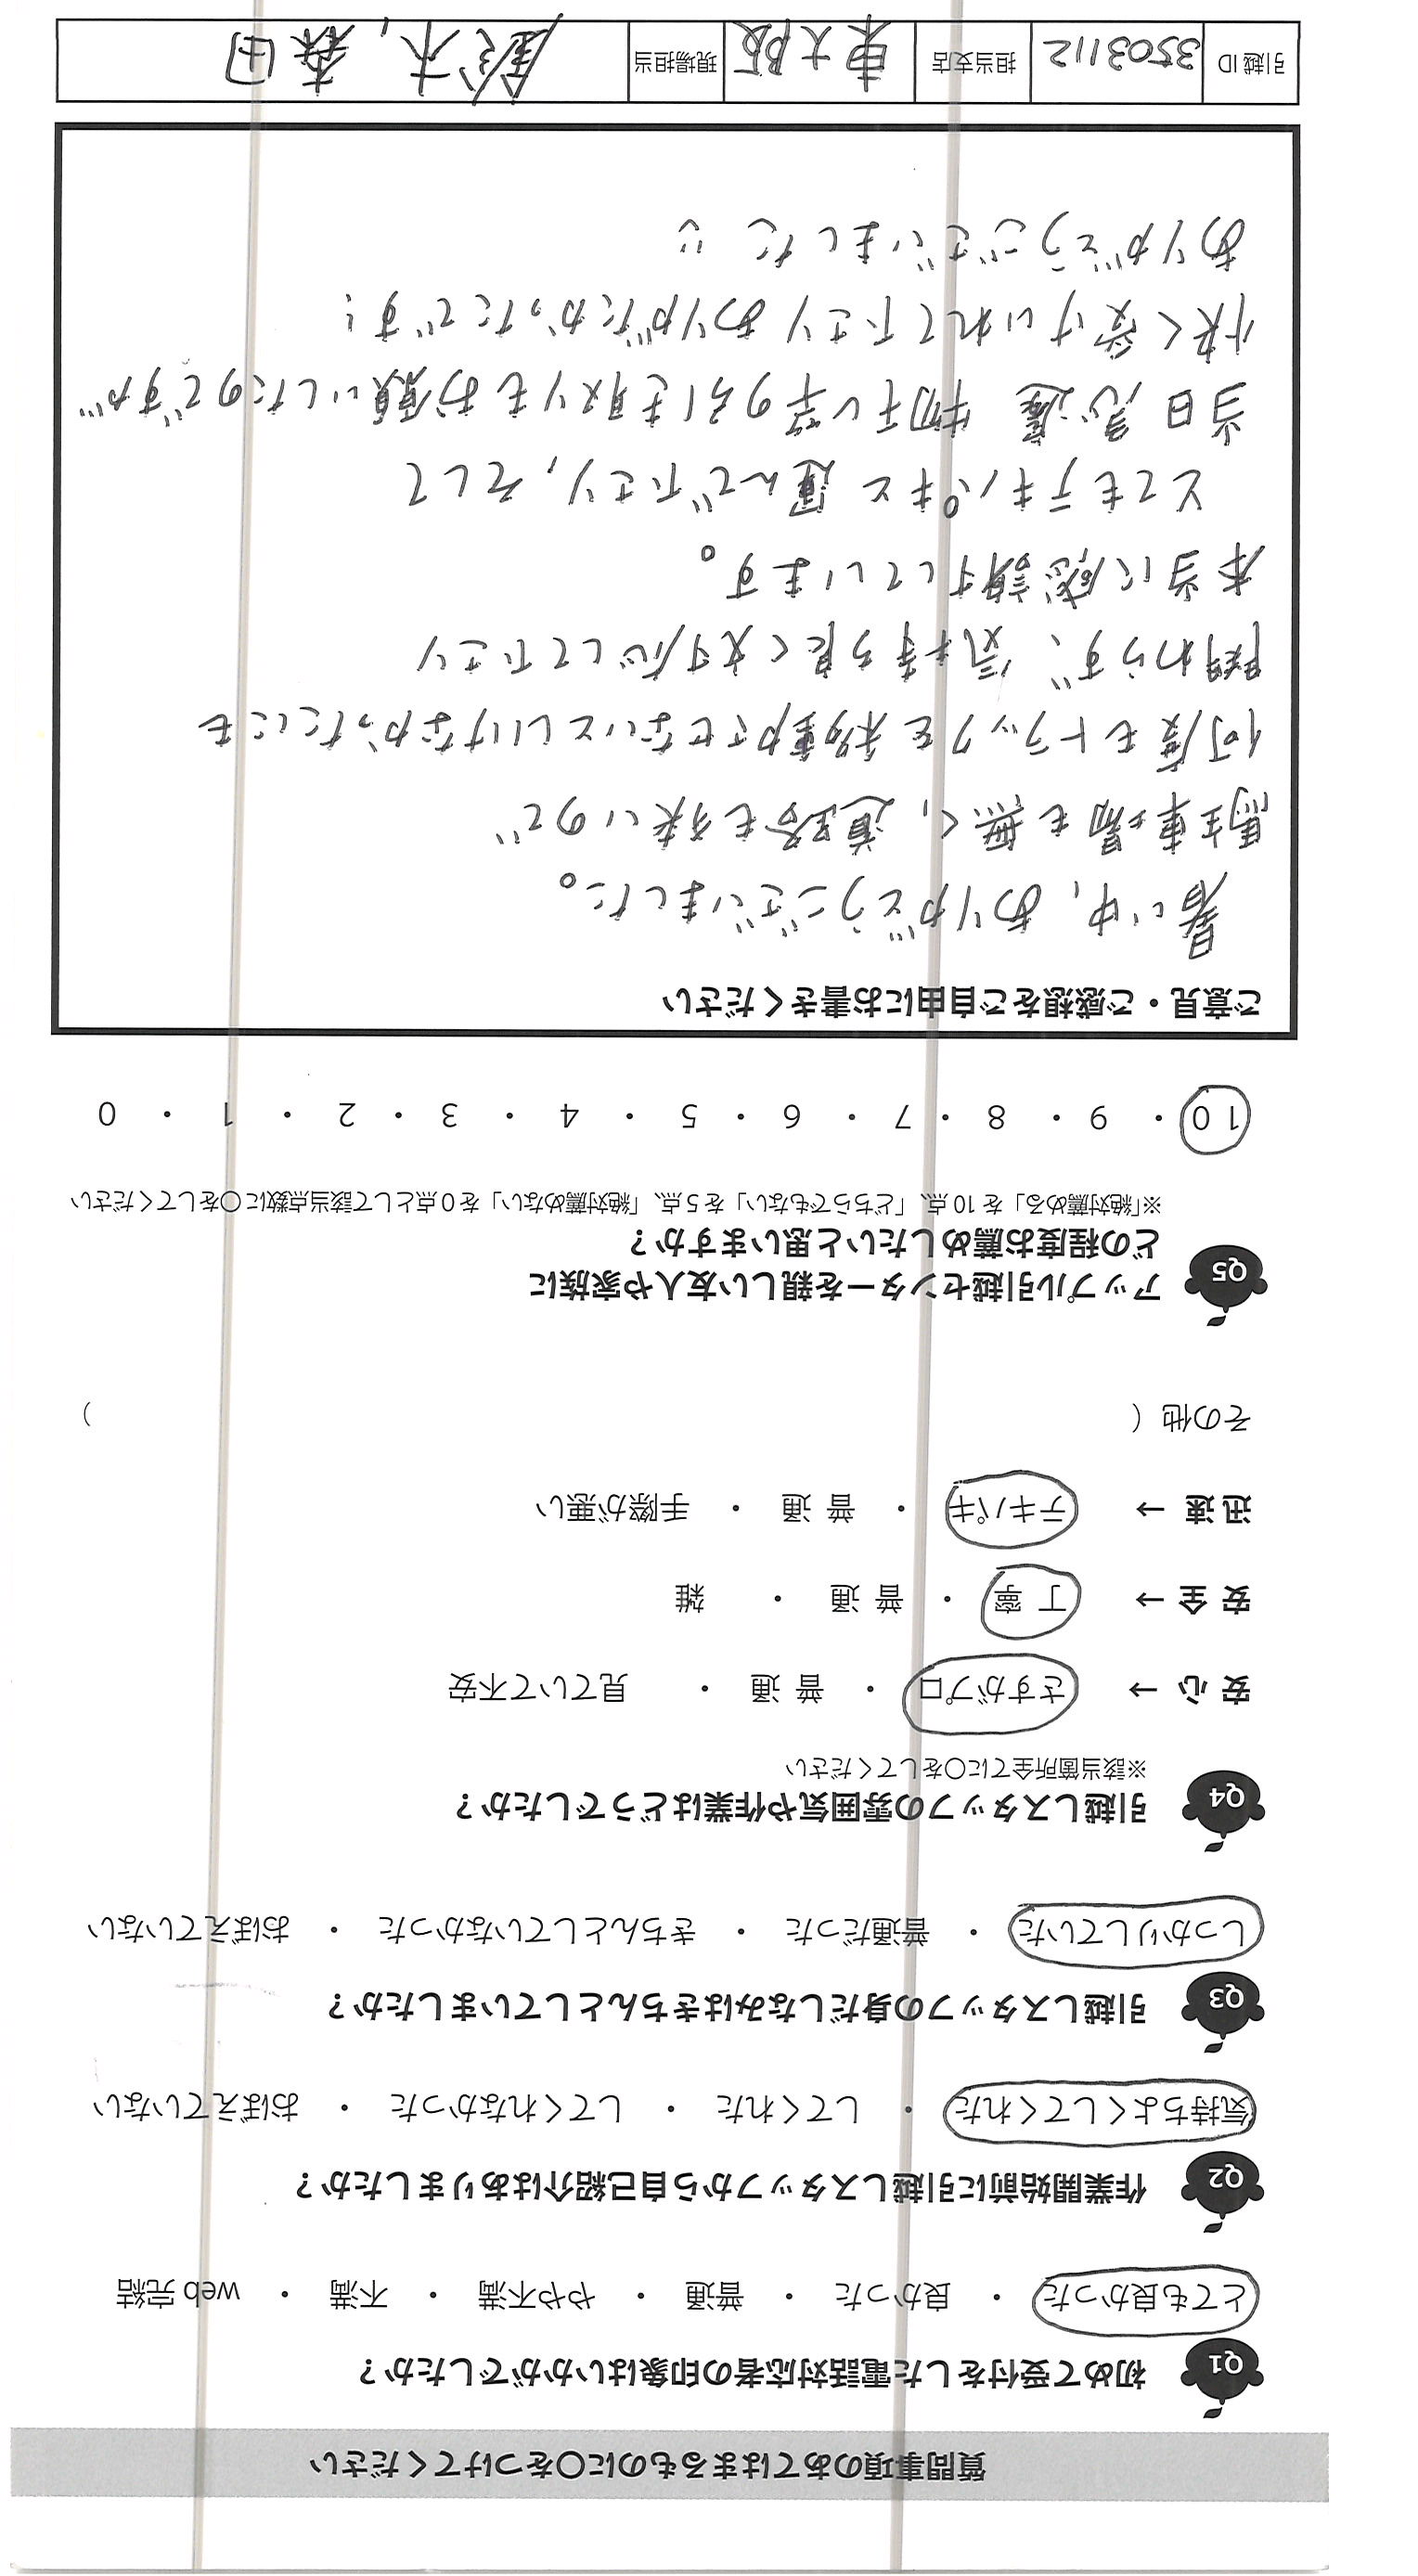 質問事項のあてはまるものに○をつけてください
Q1 初めて受付をした電話対応者の印象はいかがでしたか？
とても良かった ・ 良かった ・ 普通 ・ やや不満 ・ 不満 ・ web 完結
Q2 作業開始前に引越しスタッフから自己紹介はありましたか？
気持ちよくしてくれた ・ してくれた ・ してくれなかった ・ おぼえていない
Q3 引越しスタッフの身だしなみはきちんとしていましたか？
しっかりしていた ・ 普通だった ・ きちんとしていなかった ・ おぼえていない
Q4 引越しスタッフの雰囲気や作業はどうでしたか？
※該当箇所全てに○をしてください
安 心 → さすがプロ ・ 普 通 ・ 見ていて不安
安 全 → 丁 寧 ・ 普 通 ・ 雑
迅 速 → テキパキ ・ 普 通 ・ 手際が悪い
その他（ ）
Q5 アップル引越センターを親しい友人や家族に
どの程度お薦めしたいと思いますか？
※「絶対薦める」を 10 点、「どちらでもない」を 5 点、「絶対薦めない」を 0 点として該当点数に○をしてください
10 ・ 9 ・ 8 ・ 7 ・ 6 ・ 5 ・ 4 ・ 3 ・ 2 ・ 1 ・ 0
ご意見・ご感想をご自由にお書きください
暑い中、ありがとうございました。
駐車場も無く、道路も狭いので
何度もトラックを移動させないといけなかったにも
関わらず、気持ち良く対応して下さり
本当に感謝しています。
とてもテキパキと運んで下さり、そして
当日急遽 物干し竿の引き取りもお願いしたのですが
快く受けいれて下さりありがたかったです！
ありがとうございました
引越 ID 3503112 担当支店 東大阪 現場担当 鈴木, 森田